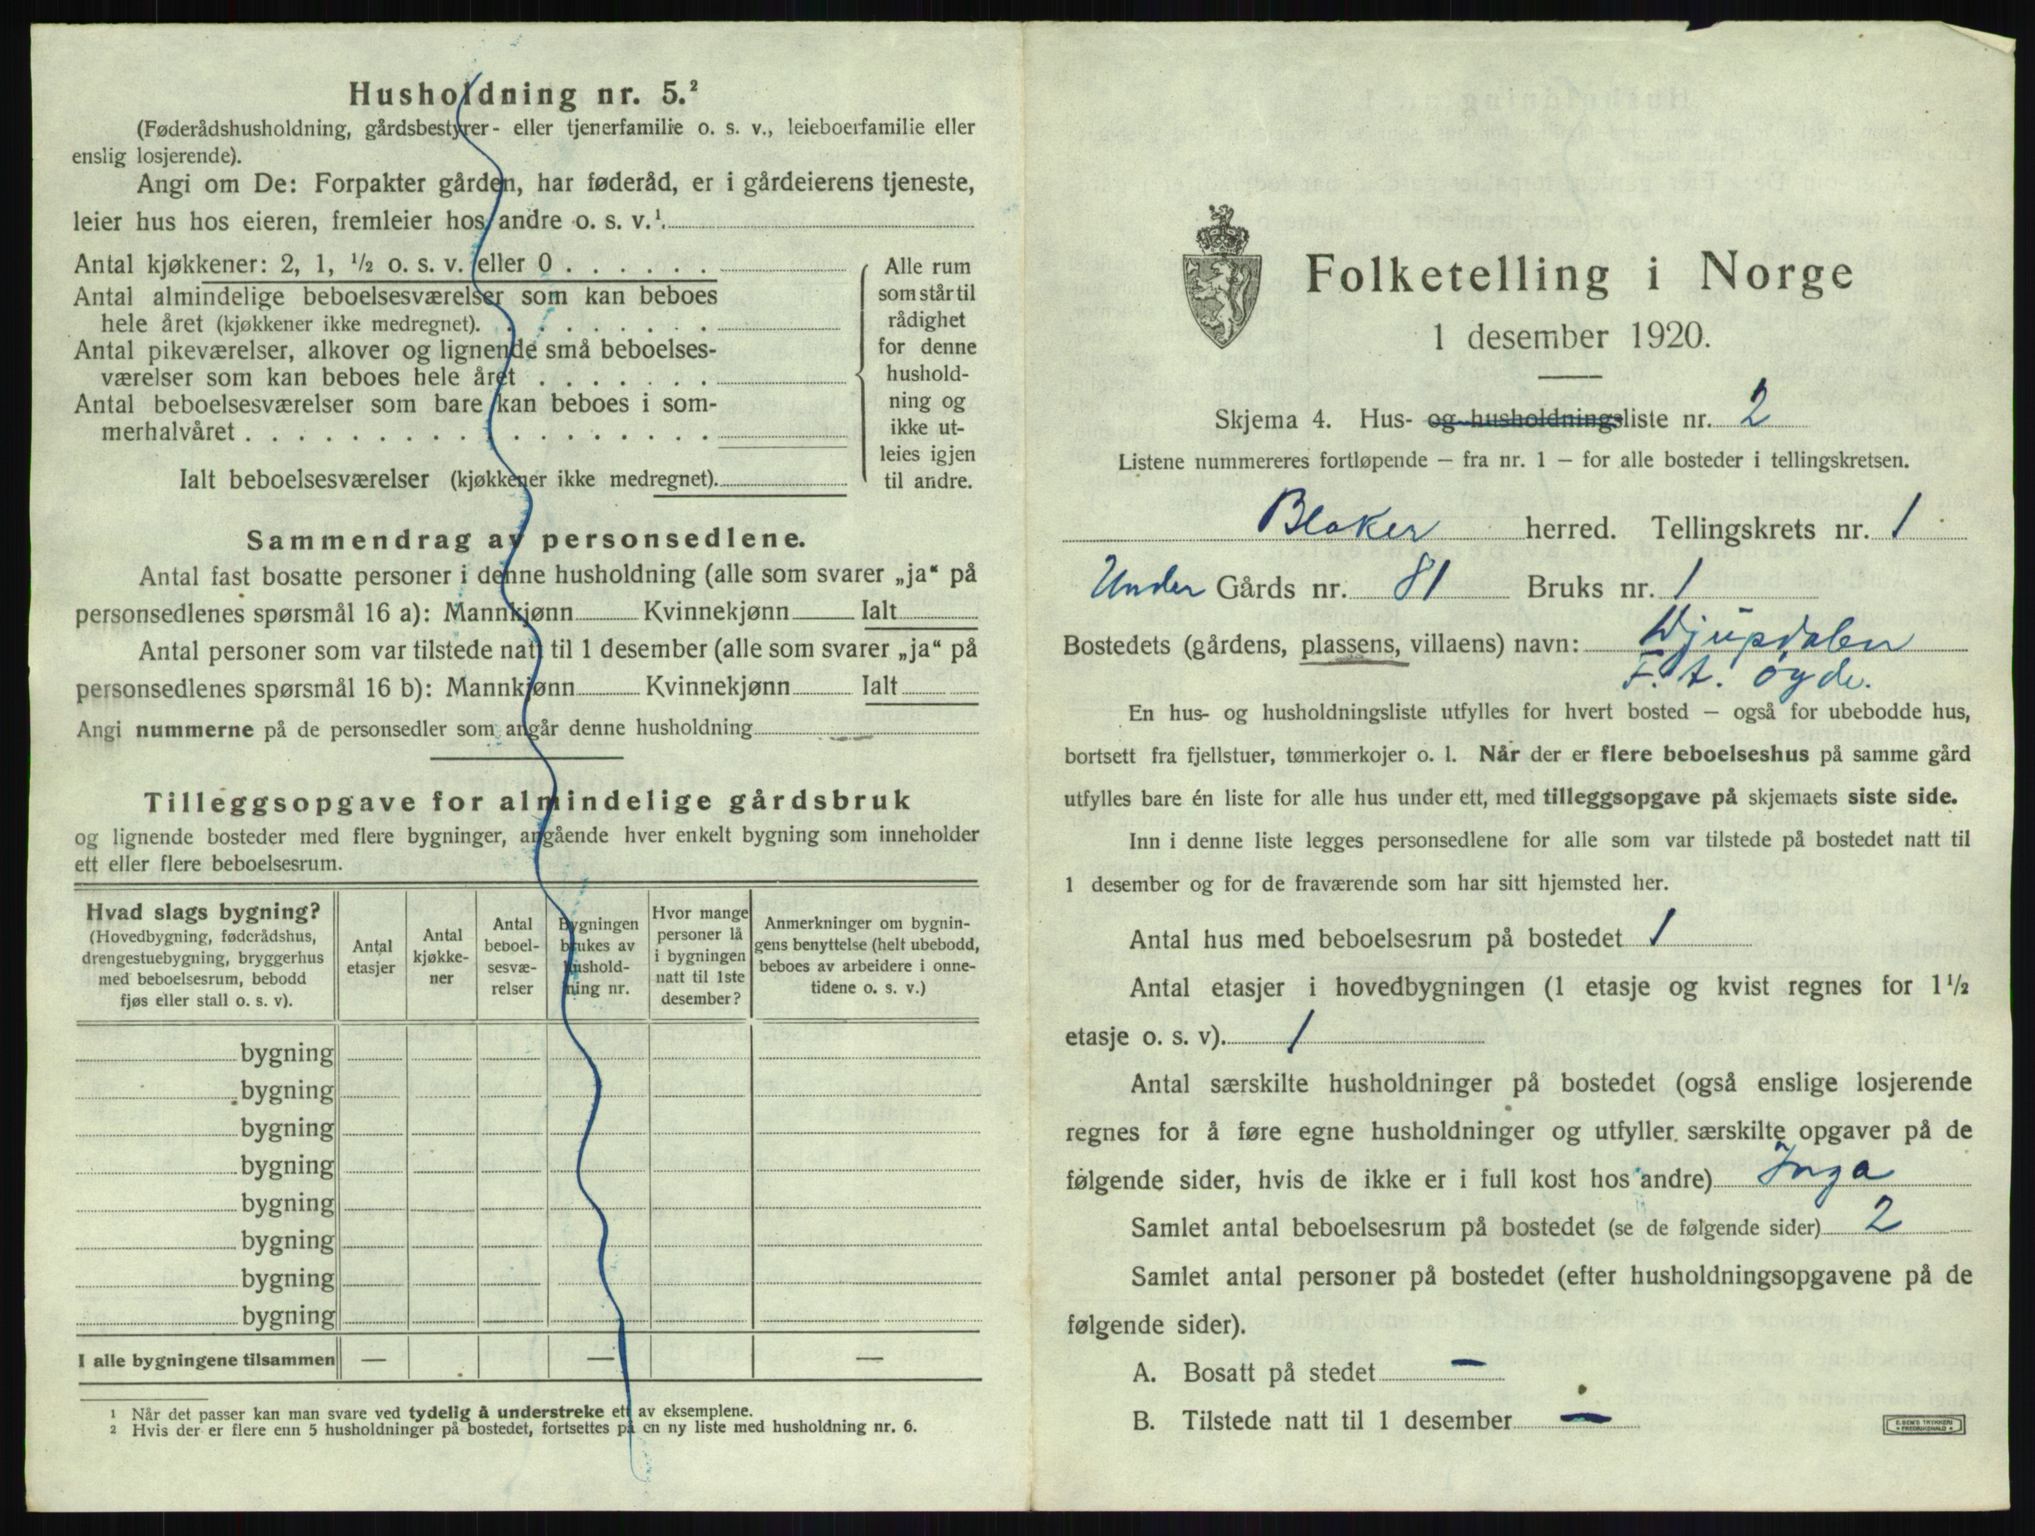 Husholdning nr. 5.²
(Føderådshusholdning, gårdsbestyrer- eller tjenerfamilie o. s. v., leieboerfamilie eller
enslig losjerende).
Angi om De: Forpakter gården, har føderåd, er i gårdeierens tjeneste,
leier hus hos eieren, fremleier hos andre o. s. v.¹.
Antal kjøkkener: 2, 1, ¹/₂ o. s. v. eller 0 . . . . . .
Antal almindelige beboelsesværelser som kan beboes
hele året (kjøkkener ikke medregnet). . . . . . . .
Antal pikeværelser, alkover og lignende små beboelses-
værelser som kan beboes hele året . . . . . . .
Antal beboelsesværelser som bare kan beboes i som-
merhalvåret . . . . . . . . . . . . . . . . . .
Ialt beboelsesværelser (kjøkkener ikke medregnet).
Alle rum
som står til
rådighet
for denne
hushold-
ning og
ikke ut-
leies igjen
til andre.
Sammendrag av personsedlene.
Antal fast bosatte personer i denne husholdning (alle som svarer „ja“ på
personsedlenes spørsmål 16 a): Mannkjønn Kvinnekjønn Ialt
Antal personer som var tilstede natt til 1 desember (alle som svarer „ja“ på
personsedlenes spørsmål 16 b): Mannkjønn Kvinnekjønn Ialt
Angi nummerne på de personsedler som angår denne husholdning
Tilleggsopgave for almindelige gårdsbruk
og lignende bosteder med flere bygninger, angående hver enkelt bygning som inneholder
ett eller flere beboelsesrum.
Hvad slags bygning?
(Hovedbygning, føderådshus,
drengestuebygning, bryggerhus
med beboelsesrum, bebodd
fjøs eller stall o. s. v).
Antal
etasjer
Antal
kjøkke-
ner
Antal
beboel-
sesvæ-
relser
Bygningen
brukes av
hushold-
ning nr.
Hvor mange
personer lå
i bygningen
natt til 1ste
desember?
Anmerkninger om bygnin-
gens benyttelse (helt ubebodd,
beboes av arbeidere i onne-
tidene o. s. v.)
bygning
bygning
bygning
bygning
bygning
bygning
bygning
bygning
I alle bygningene tilsammen — — —
¹ Når det passer kan man svare ved tydelig å understreke ett av eksemplene.
² Hvis der er flere enn 5 husholdninger på bostedet, fortsettes på en ny liste med husholdning nr. 6.
Folketelling i Norge
1 desember 1920.
Skjema 4. Hus- og husholdningsliste nr. 2
Listene nummereres fortløpende – fra nr. 1 – for alle bosteder i tellingskretsen.
Blaker herred. Tellingskrets nr. 1
Under Gårds nr. 81 Bruks nr. 1
Bostedets (gårdens, plassens, villaens) navn: Djupdalen
F. t. øyde.
En hus- og husholdningsliste utfylles for hvert bosted – også for ubebodde hus,
bortsett fra fjellstuer, tømmerkojer o. l. Når der er flere beboelseshus på samme gård
utfylles bare én liste for alle hus under ett, med tilleggsopgave på skjemaets siste side.
Inn i denne liste legges personsedlene for alle som var tilstede på bostedet natt til
1 desember og for de fraværende som har sitt hjemsted her.
Antal hus med beboelsesrum på bostedet 1
Antal etasjer i hovedbygningen (1 etasje og kvist regnes for 1¹/₂
etasje o. s. v). 1
Antal særskilte husholdninger på bostedet (også enslige losjerende
regnes for å føre egne husholdninger og utfyller særskilte opgaver på de
følgende sider, hvis de ikke er i full kost hos andre) Inga
Samlet antal beboelsesrum på bostedet (se de følgende sider) 2
Samlet antal personer på bostedet (efter husholdningsopgavene på de
følgende sider).
A. Bosatt på stedet –
B. Tilstede natt til 1 desember –